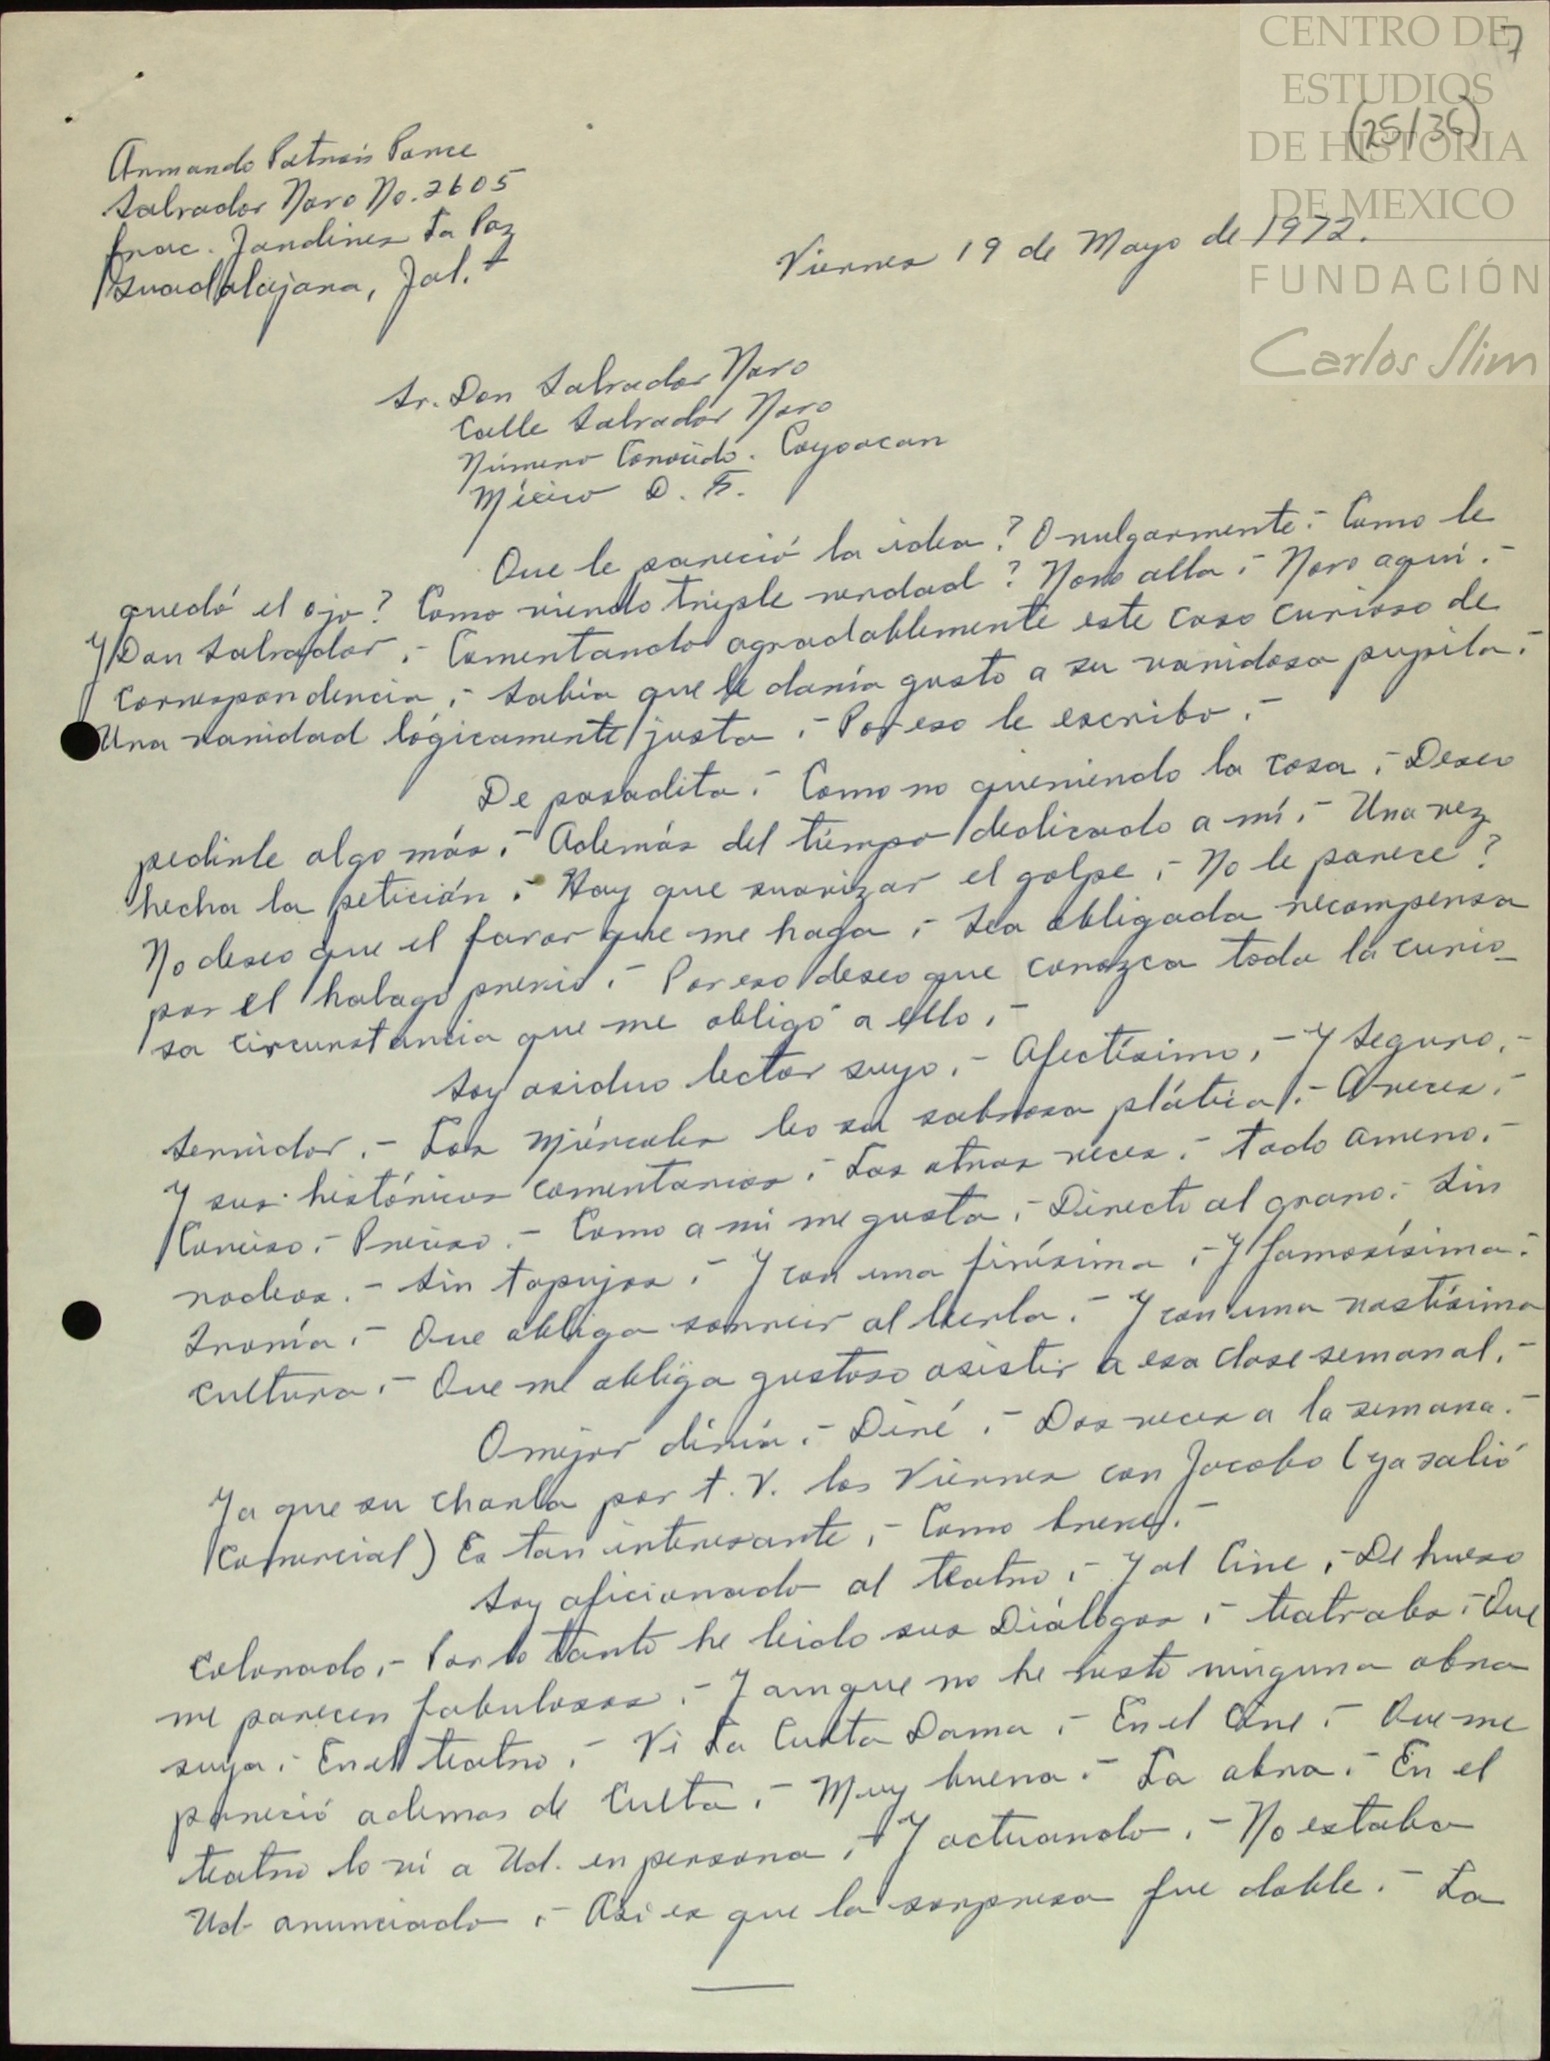 CENTRO DE
ESTUDIOS
DE HISTORIA
DE MEXICO
FUNDACIÓN
Carlos Slim
7
(25/36)
Armando Patrón Ponce
Salvador Novo No. 2605
Frac. Jardines La Paz
Guadalajara, Jal.
Viernes 19 de Mayo de 1972.
Sr. Don Salvador Novo
Calle Salvador Novo
Número Conocido. Coyoacan
México D. F.
Que le pareció la idea? O vulgarmente.- Como le
quedó el ojo? Como viendo triple verdad? Novo alla.- Novo aquí.-
Y Don Salvador.- Comentando agradablemente este caso curioso de
correspondencia.- Sabía que le daría gusto a su vanidosa pupila.-
Una vanidad lógicamente justa.- Por eso le escribo.-
De pasadita.- Como no queriendo la cosa.- Deseo
pedirle algo más.- Además del tiempo dedicado a mí.- Una vez
hecha la petición.- Hay que suavizar el golpe.- No le parece?
No deseo que el favor que me haga.- Sea obligada recompensa
por el halago previo.- Por eso deseo que conozca toda la curio-
sa circunstancia que me obligó a ello.-
Soy asiduo lector suyo.- Afectísimo.- Y Seguro.-
Servidor.- Los Miércoles leo su sabrosa plática.- A veces.-
Y sus históricos comentarios.- Las otras veces.- Todo ameno.-
Conciso.- Preciso.- Como a mi me gusta.- Directo al grano.- Sin
rodeos.- Sin tapujos.- Y con una finísima.- Y famosísima.-
Ironía.- Que obliga sonreir al leerla.- Y con una vastísima
cultura.- Que me obliga gustoso asistir a esa clase semanal.-
O mejor diría.- Diré.- Dos veces a la semana.-
Ya que su charla por T.V. los Viernes con Jacobo (ya salió
comercial) Es tan interesante.- Como breve.-
Soy aficionado al teatro.- Y al Cine.- De hueso
colorado.- Por lo tanto he leido sus Diálogos.- teatrales.- Que
me parecen fabulosos.- Y aunque no he visto ninguna obra
suya.- En el teatro.- Vi La Culta Dama.- En el Cine.- Que me
pareció ademas de Culta.- Muy buena.- La obra.- En el
teatro lo ví a Ud. en persona.- Y actuando.- No estaba
Ud. anunciado.- Asi es que la sorpresa fue doble.- La